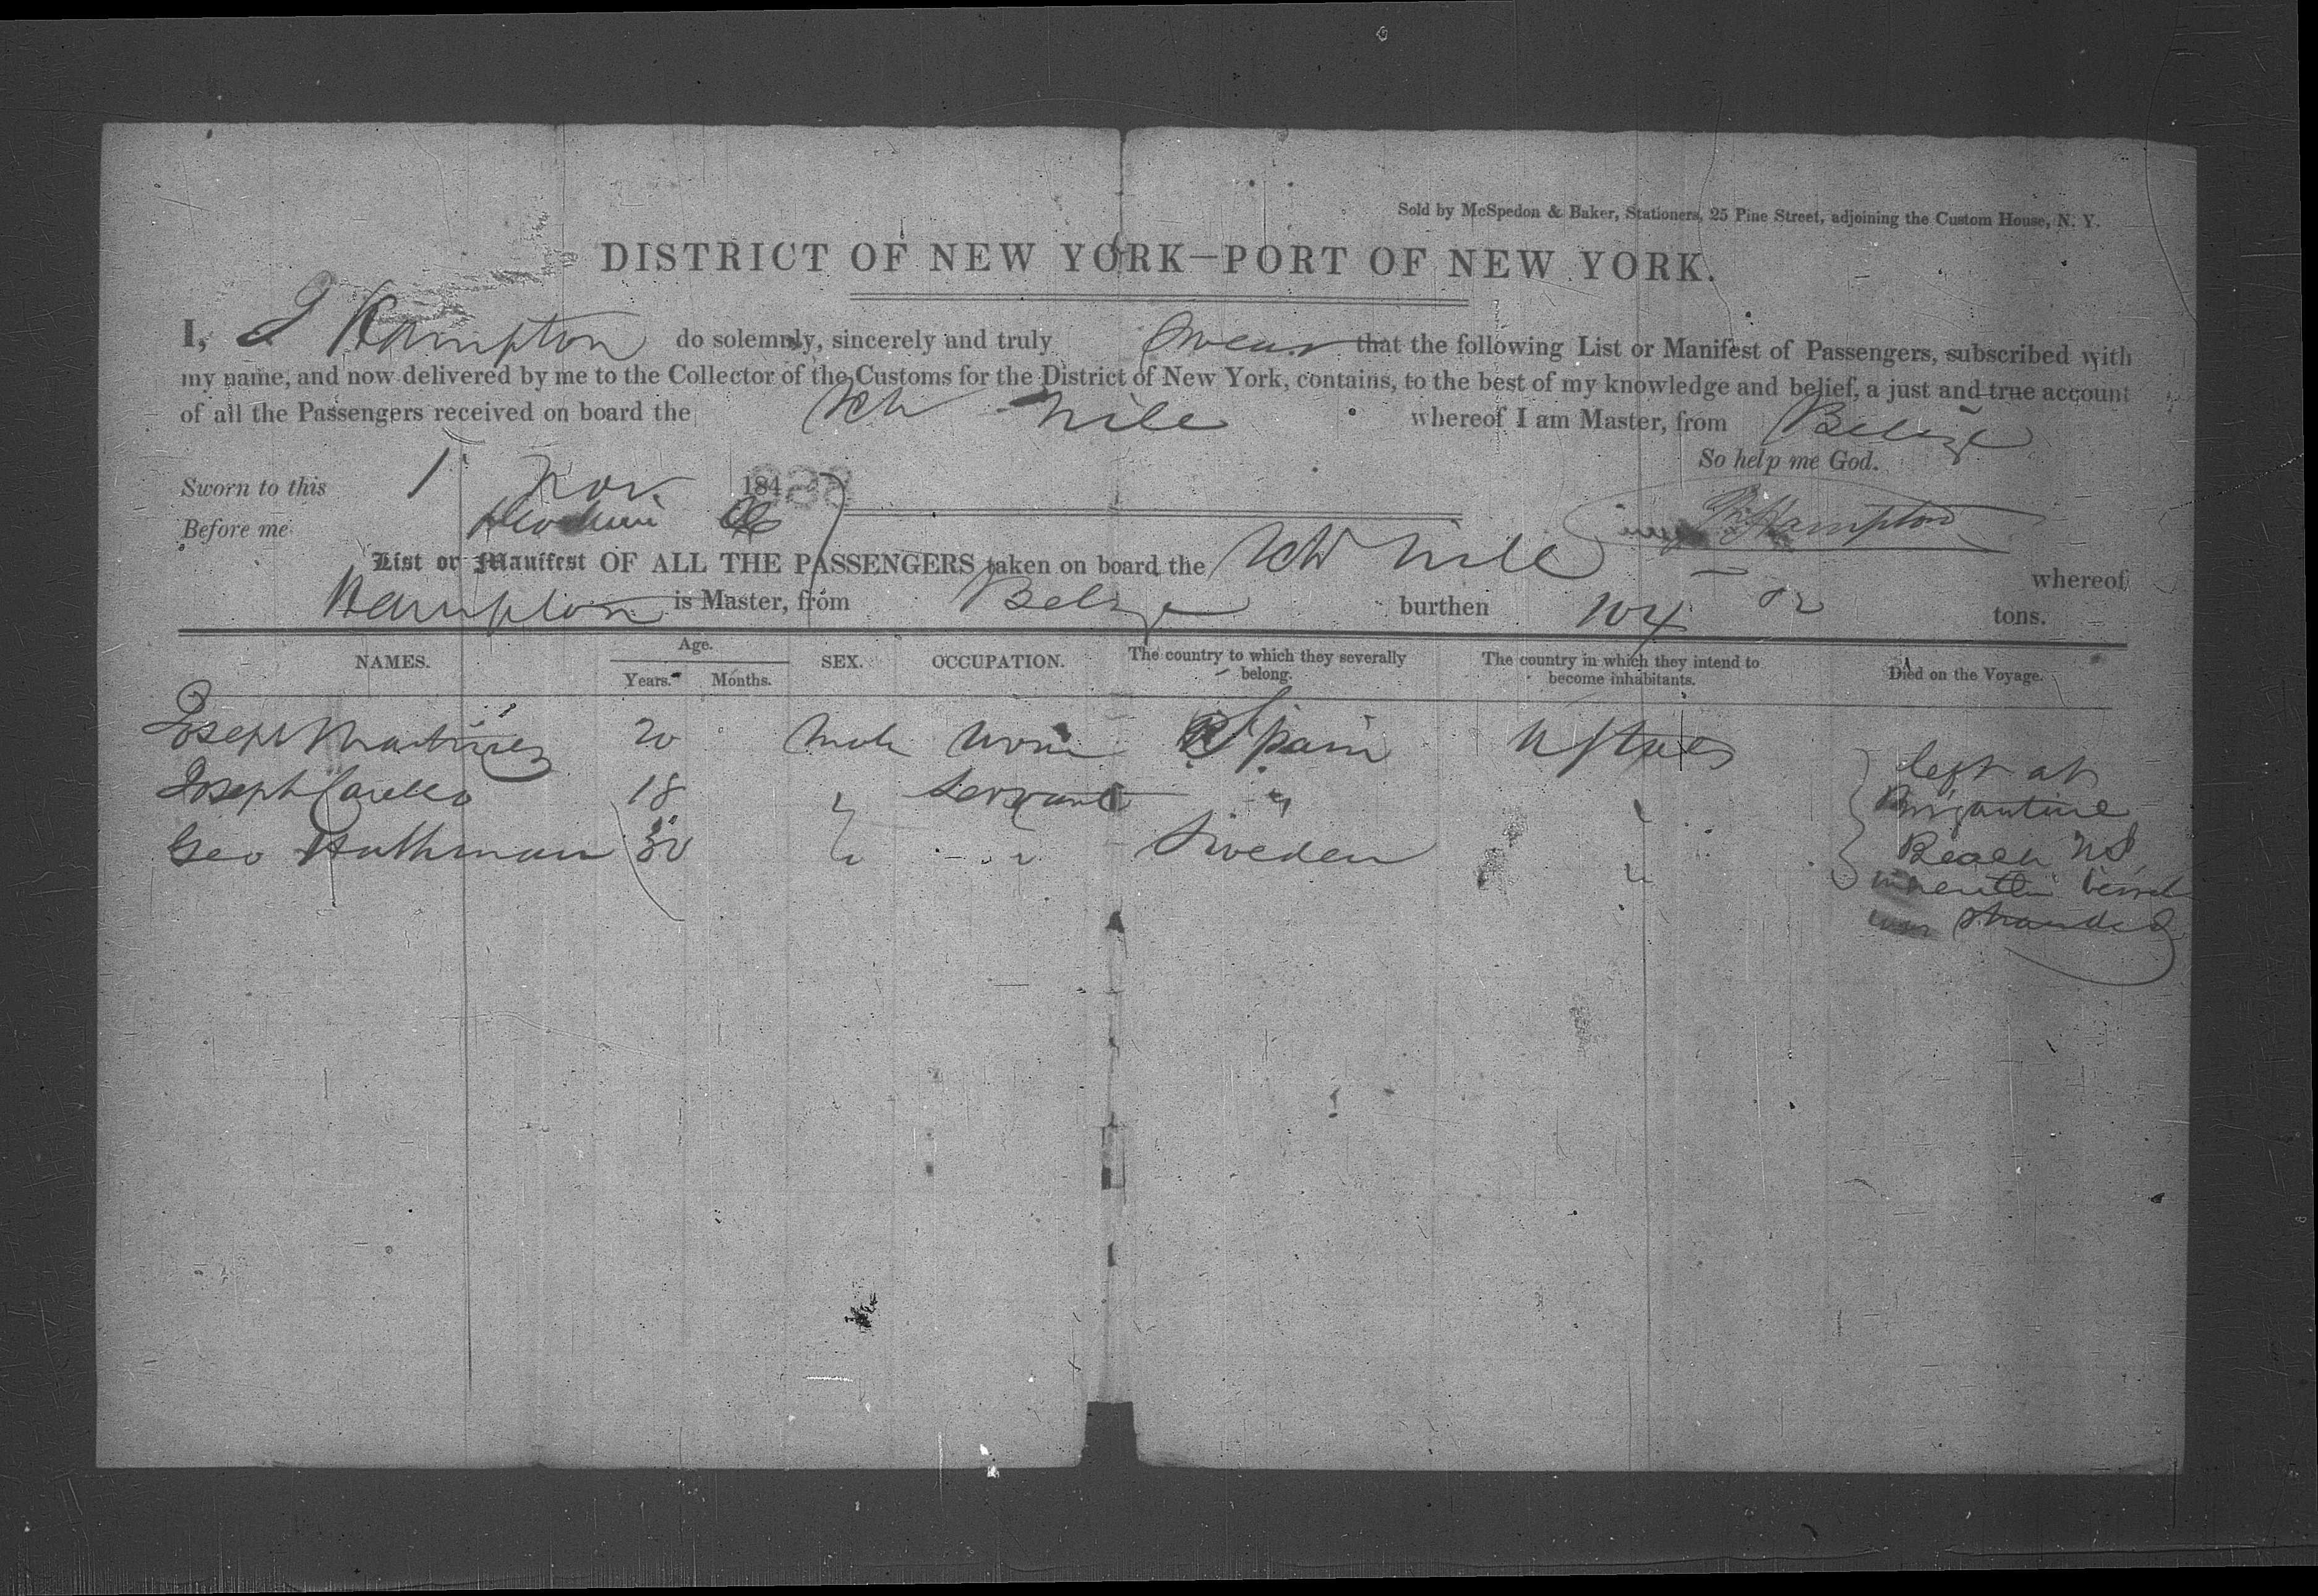 Sold by McSpedon & Baker, Stationers, 25 Pine Street, adjoining the Custom House, N. Y.
DISTRICT OF NEW YORK—PORT OF NEW YORK.
I, J Hampton do solemnly, sincerely and truly swear that the following List or Manifest of Passengers, subscribed with
my name, and now delivered by me to the Collector of the Customs for the District of New York, contains, to the best of my knowledge and belief, a just and true account
of all the Passengers received on board the Sch Nile whereof I am Master, from Belize
So help me God.
Sworn to this 1 Nov. 184
Before me Hampton
List or Manifest OF ALL THE PASSENGERS taken on board the Sch Nile whereof
Hampton is Master, from Belize burthen 104 tons.
NAMES. Age. SEX. OCCUPATION. The country to which they severally belong. The country in which they intend to become inhabitants. Died on the Voyage.
Years. Months.
Joseph Martines 20 Male None Spain U States
Joseph 18 " Servant " "
Geo 30 " " Sweden "
left at
Brigantine
Beach NJ
where the vessel
was stranded